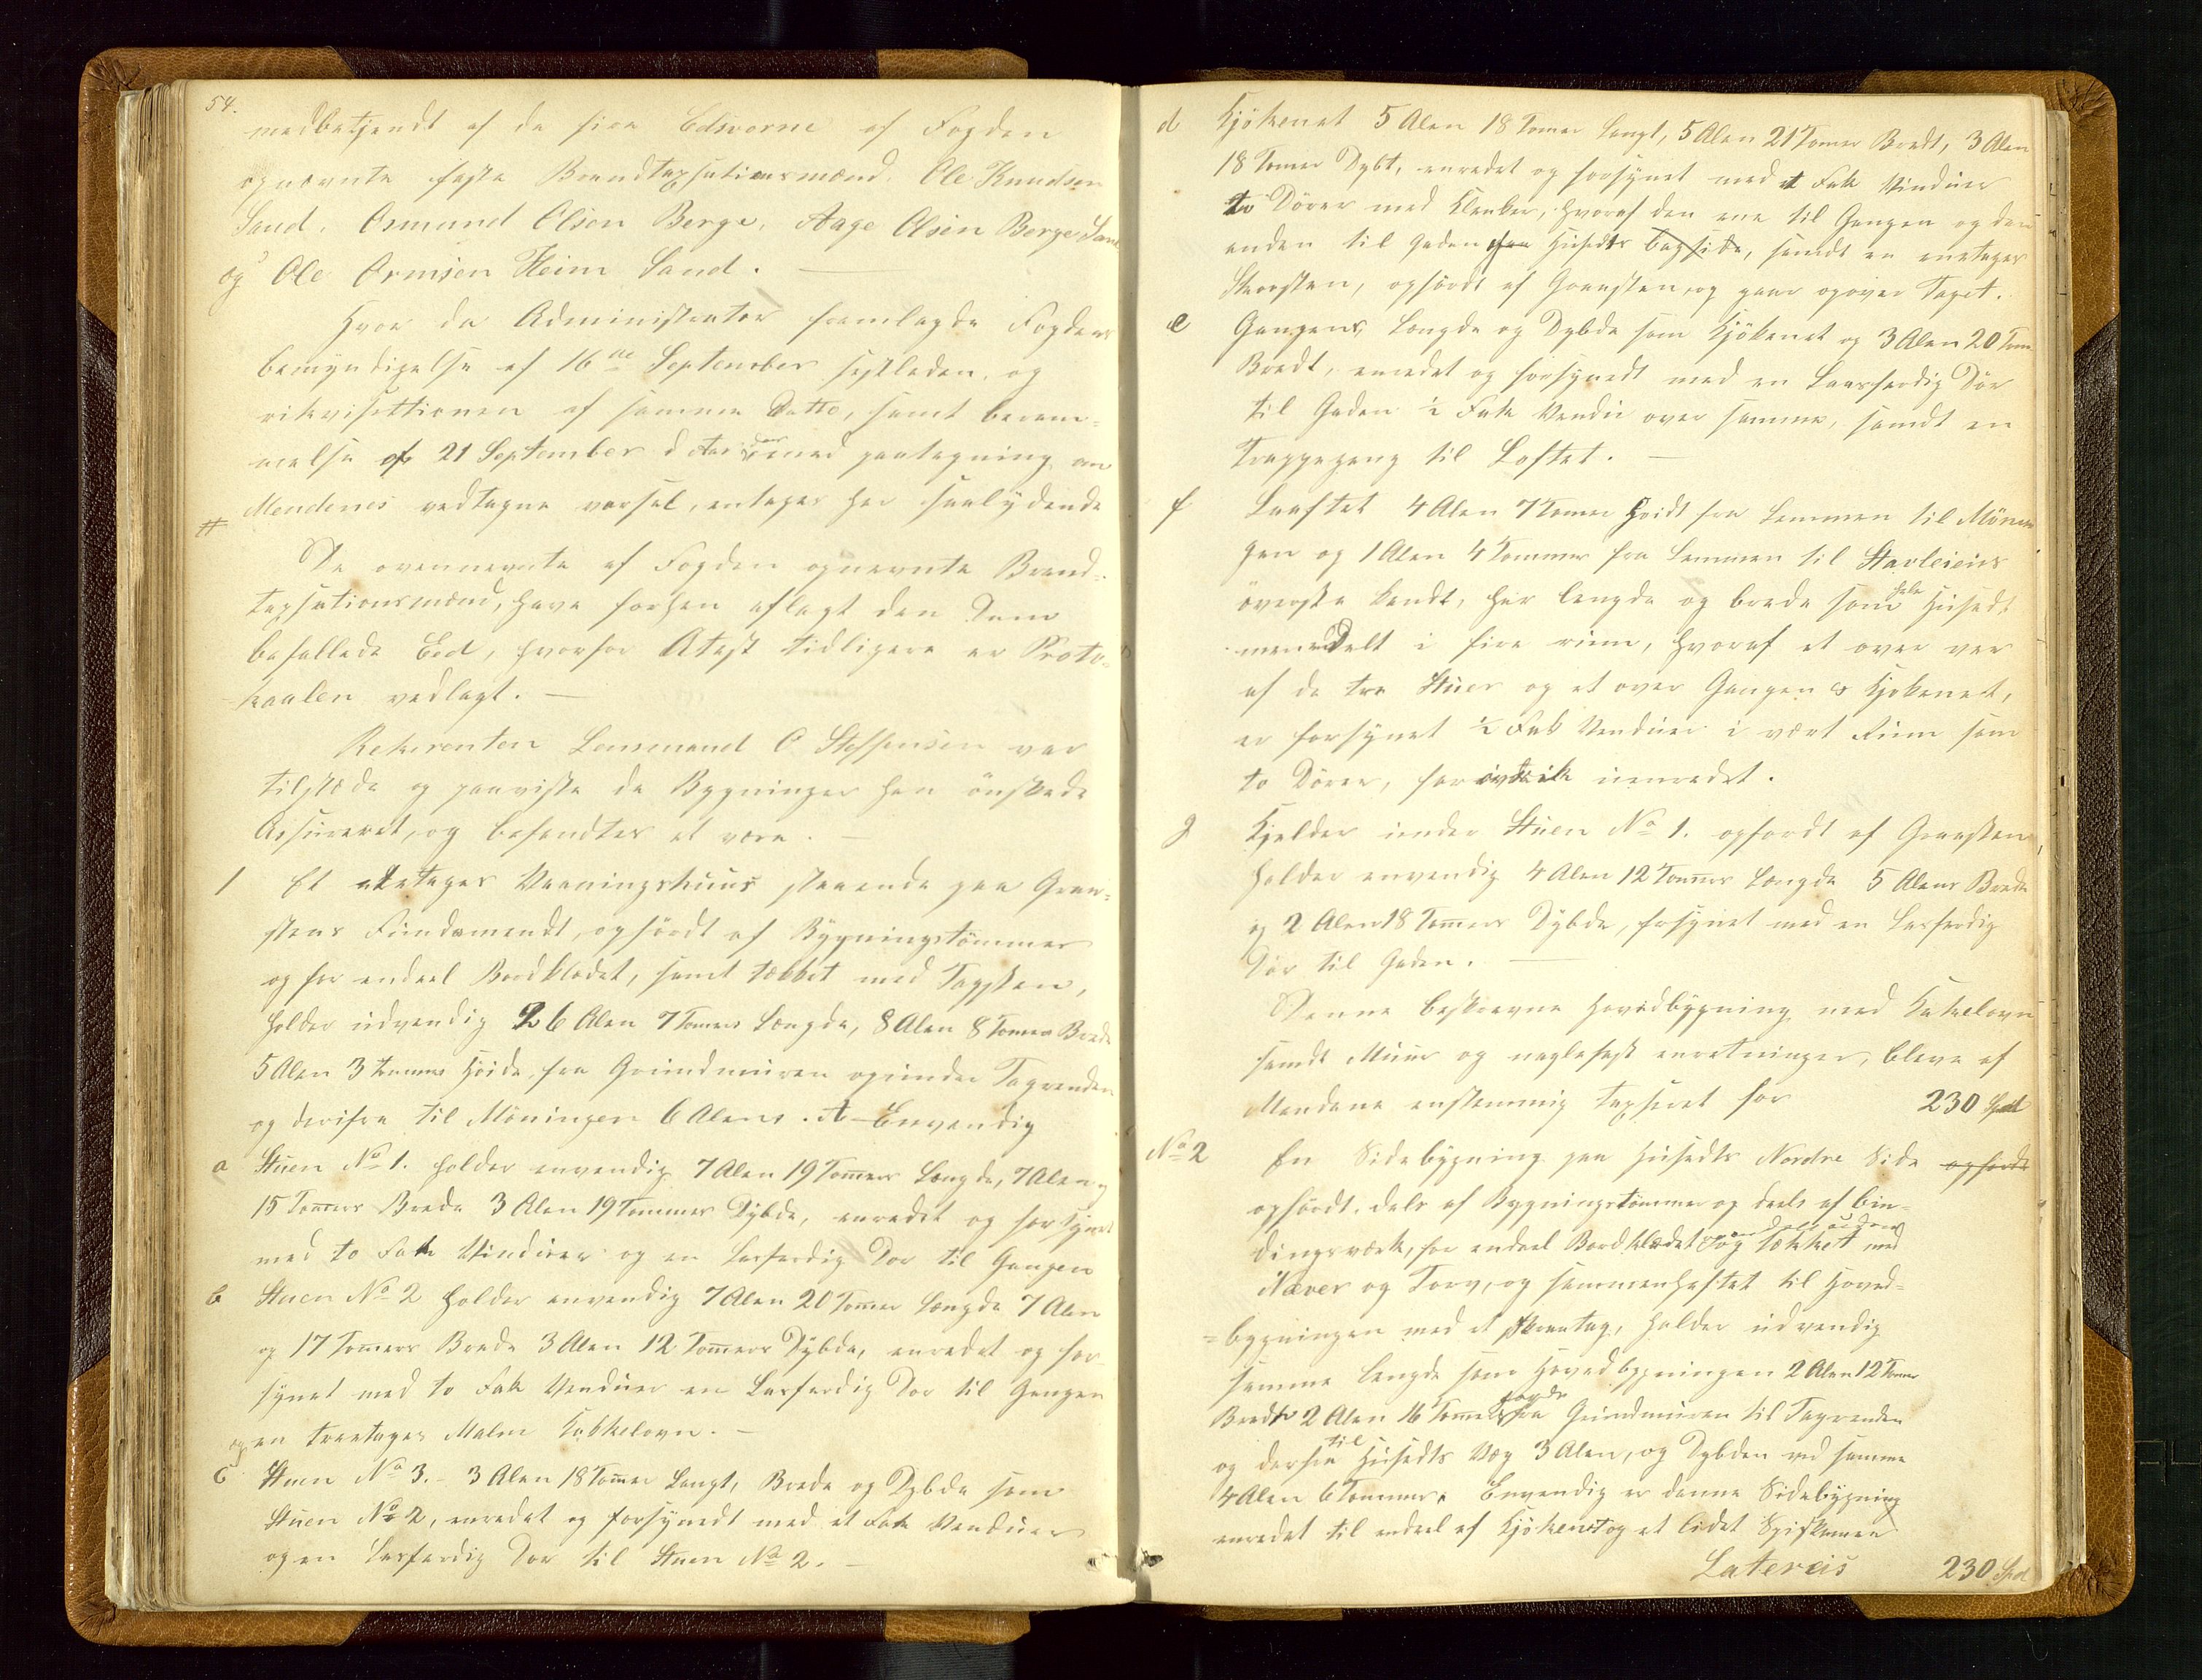 54.
medbetjendt af de fire Edsvorne af Fogden
opnævnte faste Brandtaxsationsmænd. Ole Knudsen
Sand, Osmund Olsen Berge, Aage Olsen Berge, Sand
og Ole Ormsen Heim Sand.
Hvor da Administrator fremlagde Fogdens
bemyndigelse af 16de September sistleden, og
rikvisittionen af samme Datto, samt beram-
melse af 21 September d Aar med paategning om
Mendenes vedtagne varsel, entager her saalydende
#
De ovennevnte af Fogden opnevnte Brand-
taxsationsmænd, have forhen aflagt den Dem
befallede Eed, hvorfor Atest tidligere er Proto-
kaalen vedlagt.
Rekvirenten Lensmand O Steffensen var
tilstæde og paaviste de Bygninger han ønskede
Assureret, og befandtes at være.
1 Et etetages Vaaningshuus staaende paa Graa-
stens Fundamendt, opførdt af Bygningstømmer
og for endeel Bordklædet, samt tækket med Tagsten,
holder udvendig 26 Alen 7 Tomers Længde, 8 Alen 8 Tomers Brede
5 Alen 3 Tommes Høide, fra Grundmuren opunder Tagrenden
og derifra til Møningen 6 Alens. A Envendig
a Stuen No 1. holder envendig 7 Alen 19 Tomers Længde, 7 Alen
15 Tomers Brede 3 Alen 19 Tommers Dybde, enredet og forsynet
med to Fak Vinduer og en Lasferdig Dør til Gangen
b Stuen No 2 holder envendig 7 Alen 20 Tomer Længde 7 Alen
og 17 Tomers Brede 3 Alen 12 Tomers Dybde, enredet og for
synet med to Fak Venduer en Lasferdig Dør til Gangen
og en treetages Malm Kakkelovn.
c Stuen No 3. 3 Alen 18 Tomer Langt, Brede og Dybde som
Stuen No 2, enredet og forsynedt med et Fak Venduer
og en Lasferdig Dør til Stuen No 2.
d Kjøkenet 5 Alen 18 Tomer Langt, 5 Alen 21 Tomer Bredt, 3 Alen
18 Tomer Dybt, enredet og forsynet med et Fak Vinduer
to Dørrer med Klenker, hvoraf den ene til Gangen og den
anden til Gaden Husedts Bagside, samdt en enetages
Skorsten, opførdt af Graasten, og gaar opover Taget.
e Gangens, Længde og Dybde som Kjøkenet og 3 Alen 20 Tom
Bredt, enredet og forsynedt med en Laasferdig Dør
til Gaden ½ Fak Vendue over samme, samdt en
Trappegang til Loftet.
f Laaftet 4 Alen 7 Tomer Høidt fra Lemmen til Mønin
gen og 1 Alen 4 Tommer fra Lemmen til Stavleiens
øverste kandt, har lengde og brede som hele Husedt
men Delt i fire rum, hvoraf et over ver
af de tre Stuer og et over Gangen & Kjøkenet,
er forsynet ½ Fak Venduer i vært Rum som
to Dører, for uenredet.
g Kjelder under Stuen No 1. opførdt af Graasten,
holder envendig 4 Alen 12 Tomers Længde 5 Alens Brede
og 2 Alen 18 Tomers Dybde, forsynet med en Lasferdig
Dør til Gaden.
Denne beskrevne Hovedbygning med Kakelovn
samdt Muur og naglefast enretninger, bleve af
Mendene enstemmig taxseret for 230 Spd
No 2 En Sidebygning paa Husedts Nordre Side opførdt
opførdt. dels af Bygningstømmer og deels af bin-
dingsværk, for endeel Bordklædet og tækket med
Næver og Torv, og sammenheftet til Hoved-
=bygningen med et Skraatag, holder udvendig
samme lengde som Hovedbygningen 2 Alen 12 Tomer
Bredt 2 Alen 16 Tomer Høide fra Grundmuren til Tagrenden
og derfra til Husedts Væg 3 Alen, og Dybden ved samme
4 Alen 6 Tommer. Envendig er denne Sidebygning
enredet til endeel af Kjøkenet og et lidet Spiskamer
Latereis 230 Spd